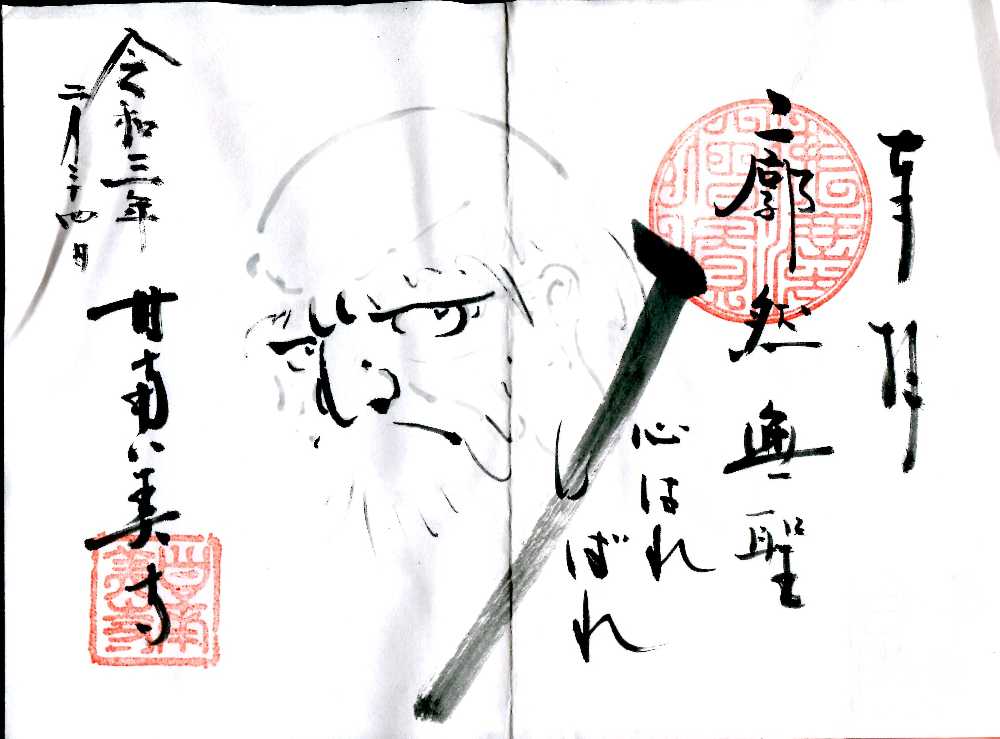 奉拝
廓然無聖
心はれ
ばれ
令和三年
二月二十四日
甘南美寺